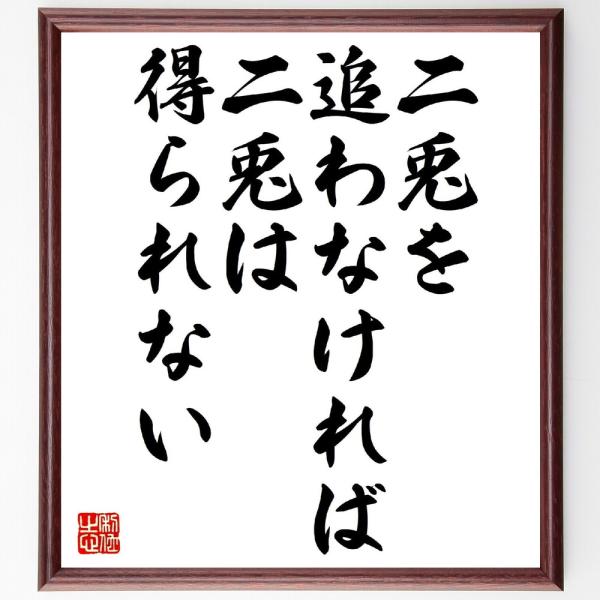 二兎を
追わなければ
二兎は
得られない